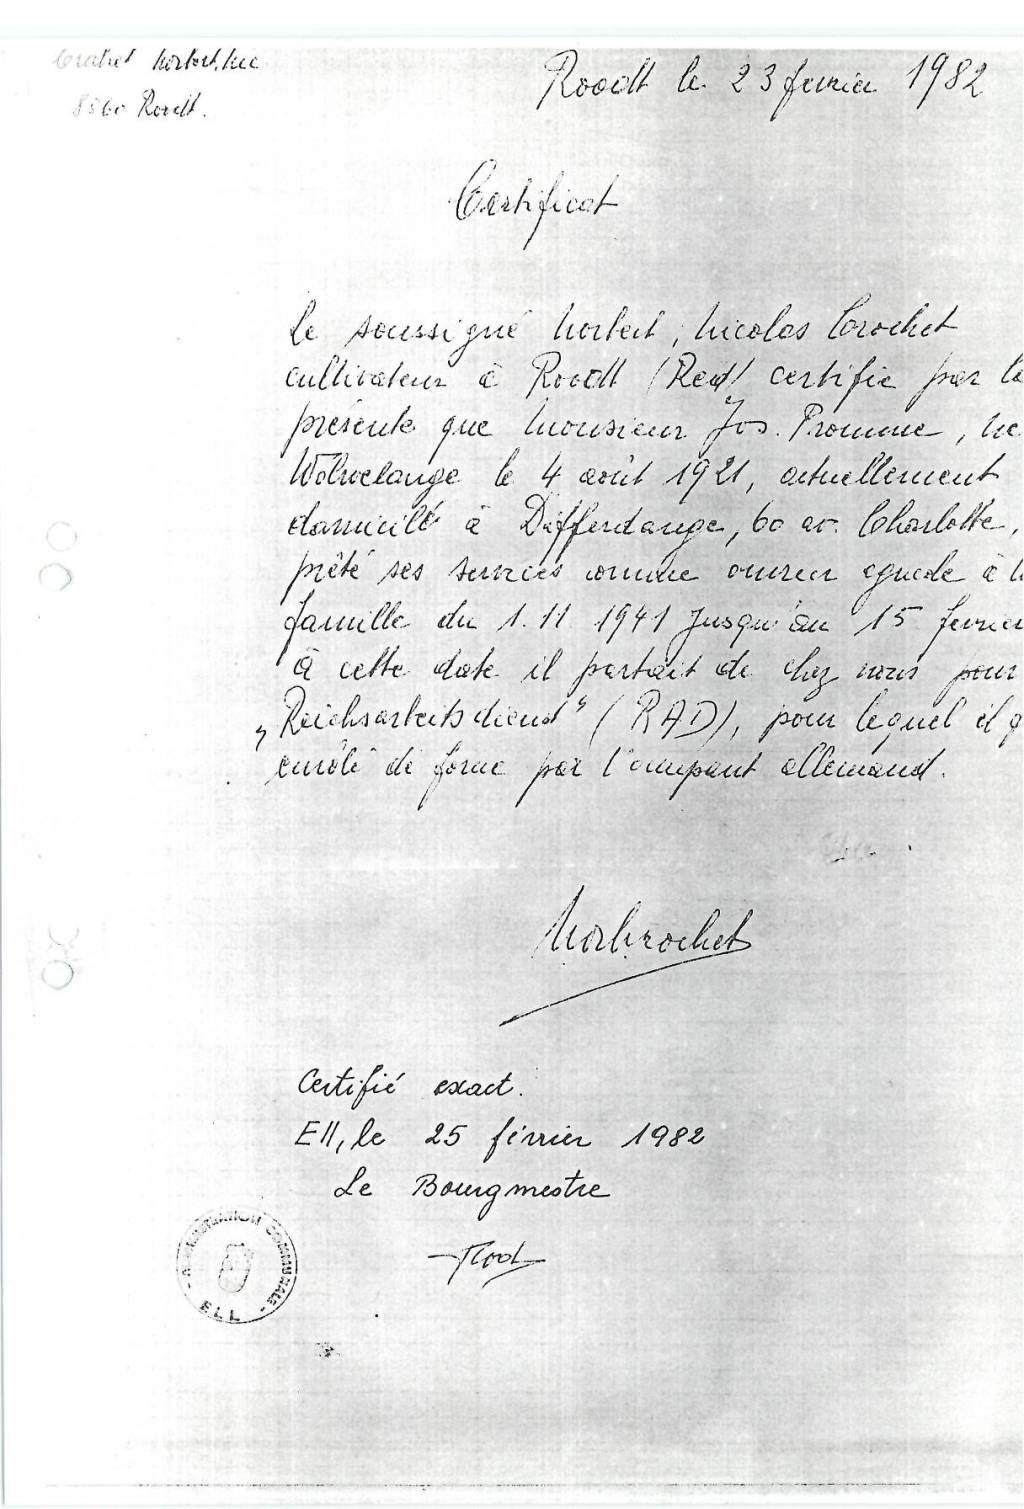 Crochet Norbert, Nic
8560 Roodt.
Roodt le 23 fevrier 1982
Certificat
Le soussigné Norbert, Nicolas Crochet
cultivateur à Roodt (Red) certifie par la
présente que Monsieur Jos. Promme, né
Wolwelange le 4 août 1921, actuellement
domicilé à Differdange, 60 av. Charlotte,
prêté ses services comme ouvrier agricole à
famille du 1.11.1941 jusqu'au 15 fevrier
à cette date il partait de chez nous pour
„Reichsarbeitsdienst" (RAD), pour lequel il
enrôlé de force par l'occupant allemand.
Norb Crochet
Certifié exact.
Ell, le 25 février 1982
Le Bourgmestre
- ADMINISTRATION COMMUNALE -
ELL